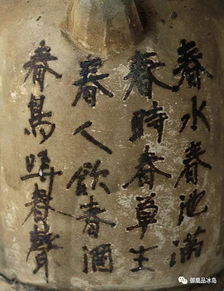 春水春池满
春時春草生
春人飲春酒
春鳥啼春聲
御凰品冰岛